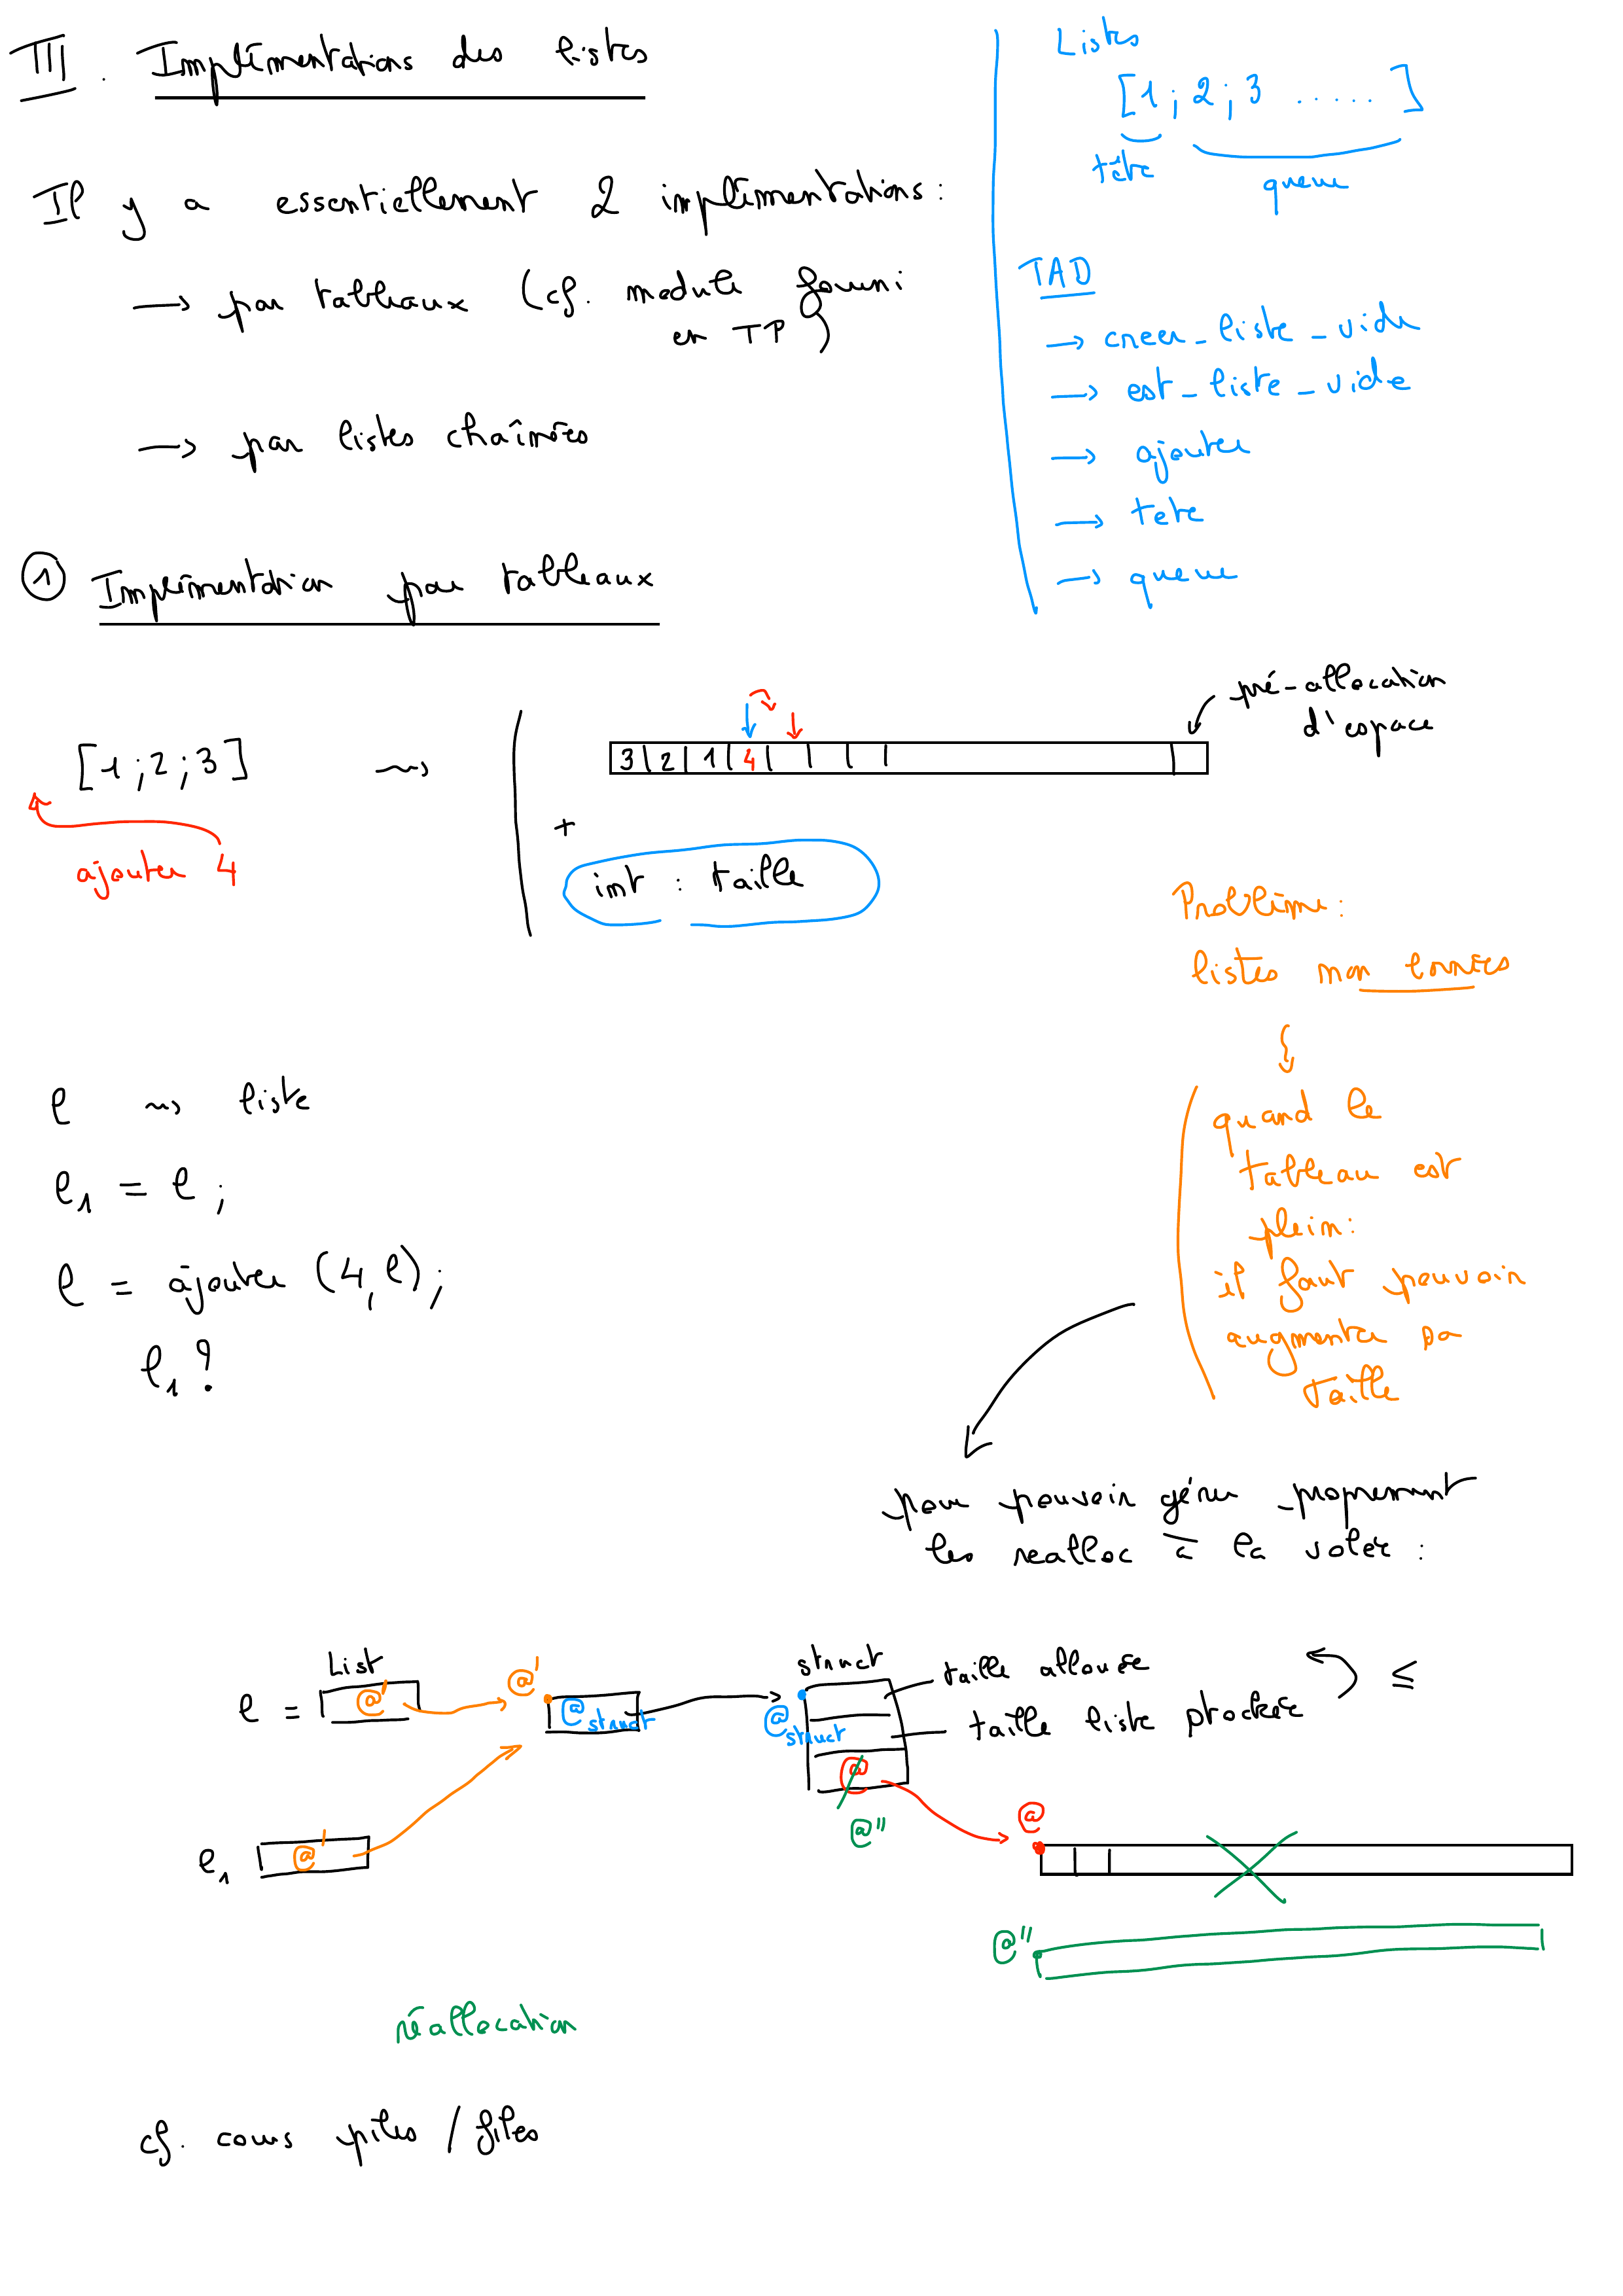 III. Implémentations des listes
Il y a essentiellement 2 implémentations :
→ par tableaux (cf. module fourni
en TP)
→ par listes chaînées
Listes
[1; 2; 3 ..... ]
tête
queue
TAD
→ creer_liste_vide
→ est_liste_vide
→ ajouter
→ tete
→ queue
① Implémentation par tableaux
[1; 2; 3]
ajouter 4
3 2 1 4
pré-allocation
d'espace
+
int : taille
Problème :
listes non bornées
quand le
tableau est
plein :
il faut pouvoir
augmenter sa
taille
l ⇝ liste
l1 = l ;
l = ajouter (4, l) ;
l1 ?
pour pouvoir gérer proprement
les realloc à la volée :
List
l = @'
@'
@struct
@struct
struct
taille allouée
taille liste stockée
≤
@
@''
@
l1 @'
@''
réallocation
cf. cours piles / files